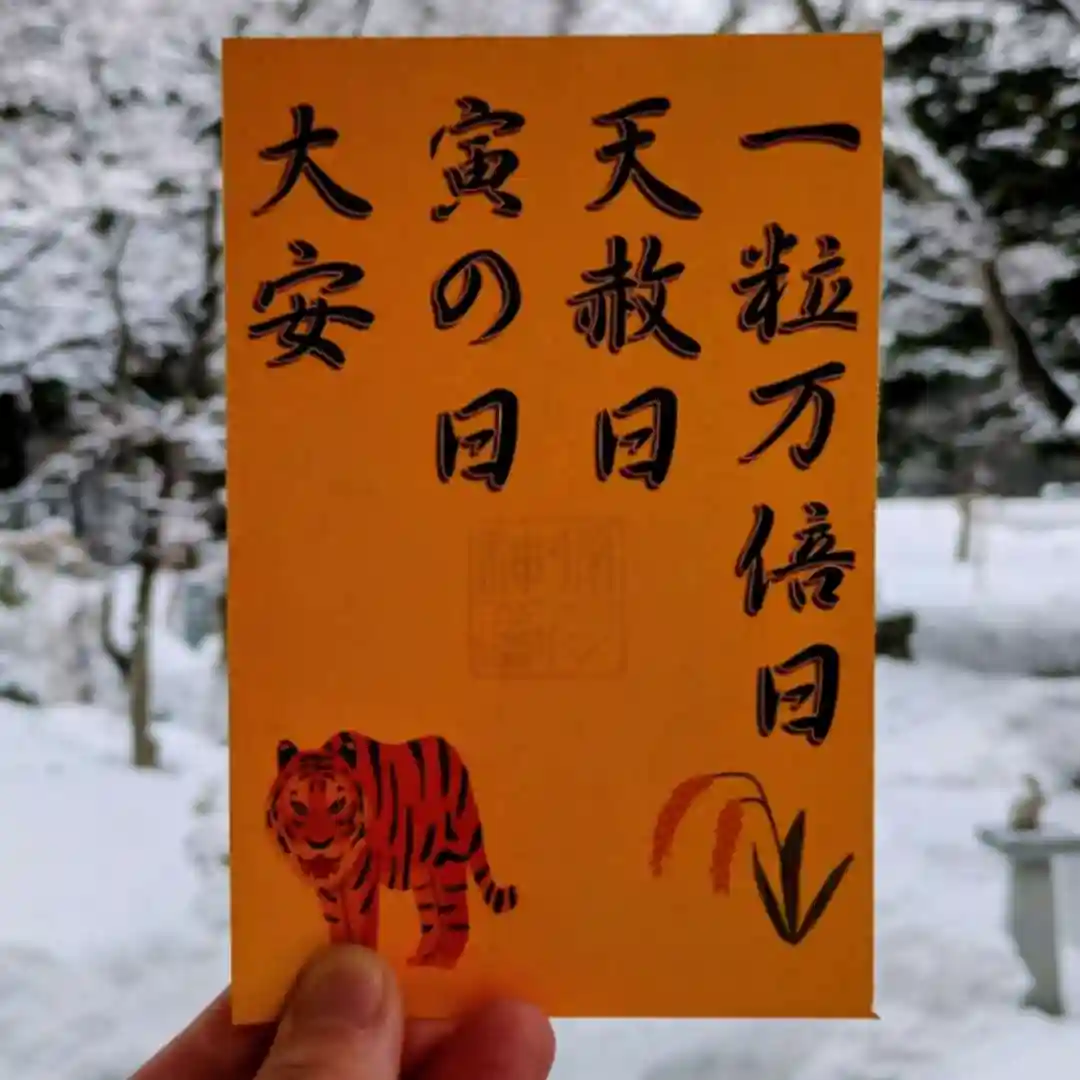 一粒万倍日
天赦日
寅の日
大安